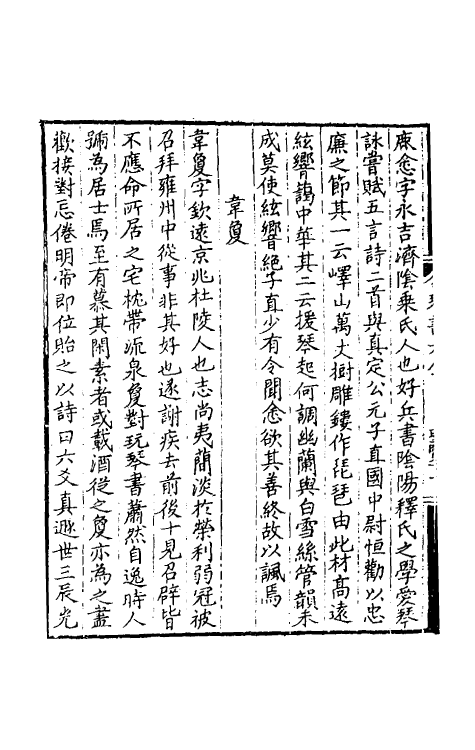 鹿悆字永吉濟陰乘氏人也好兵書陰陽釋氏之學愛琴
詠嘗賦五言詩二首與真定公元子直國中尉恒勸以忠
廉之節其一云嶧山萬丈樹雕鏤作琵琶由此材高遠
絃響藹中華其二云援琴起何調幽蘭與白雪絲管韻未
成莫使絃響絕子直少有令聞悆欲其善終故以諷焉
韋夐
韋夐字敬遠京兆杜陵人也志尚夷簡淡於榮利弱冠被
召拜雍州中從事非其好也遂謝疾去前後十見召辟皆
不應命所居之宅枕帶流泉夐對玩琴書蕭然自逸時人
號為居士焉至有慕其閑素者或載酒從之夐亦為之盡
歡接對忘倦明帝即位貽之以詩曰六爻真遯世三辰光